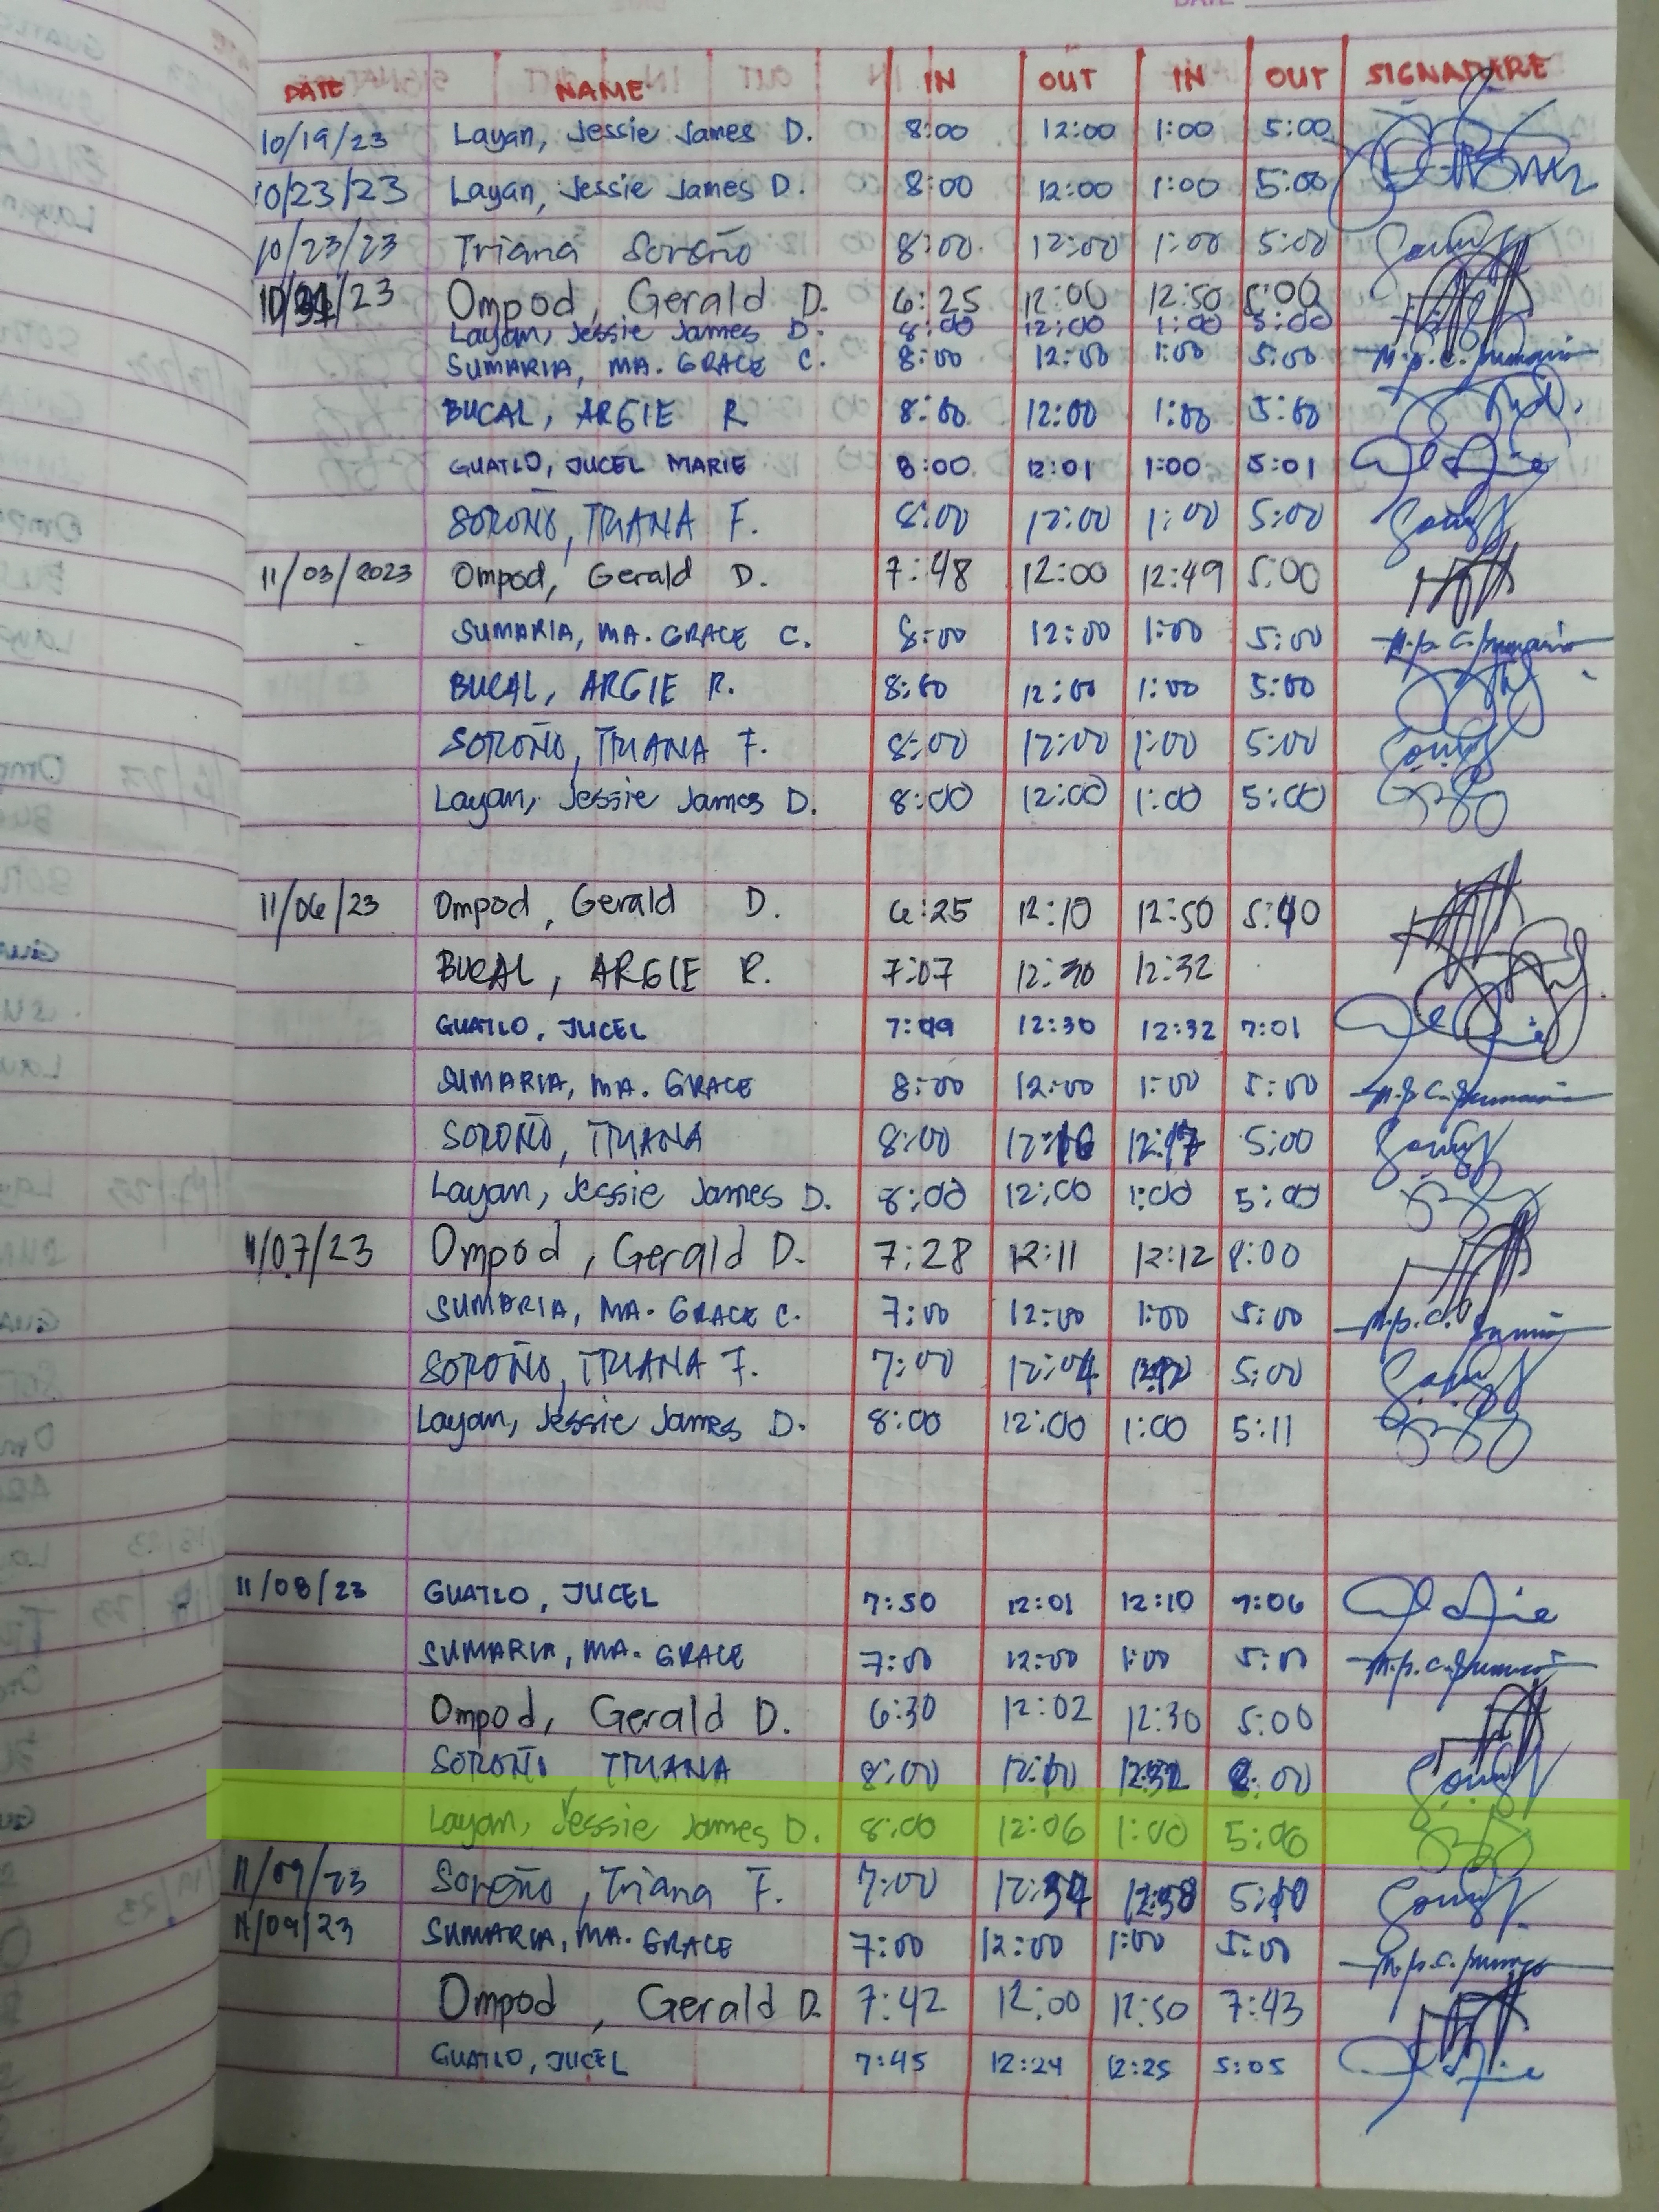 DATE
DATE NAME IN OUT IN OUT SIGNADARE
10/19/23 Layan, Jessie James D. 8:00 12:00 1:00 5:00
10/23/23 Layan, Jessie James D. 8:00 12:00 1:00 5:00
10/23/23 Triana Soroño 8:00 12:00 1:00 5:00
/23 Ompod, Gerald D. 6:25 12:00 12:50 5:00
Layan, Jessie James D. 8:00 12:00 1:00 5:00
SUMARIA, MA. GRACE C. 8:00 12:00 1:00 5:00
BUCAL, ARGIE R 8:00 12:00 1:00 5:00
GUATLO, JUCEL MARIE 8:00 12:01 1:00 5:01
SOROÑO, TRIANA F. 8:00 12:00 1:00 5:00
11/03/2023 Ompod, Gerald D. 7:48 12:00 12:49 5:00
SUMARIA, MA. GRACE C. 8:00 12:00 1:00 5:00
BUCAL, ARGIE R. 8:00 12:00 1:00 5:00
SOROÑO, TRIANA F. 8:00 12:00 1:00 5:00
Layan, Jessie James D. 8:00 12:00 1:00 5:00
11/06/23 Ompod, Gerald D. 6:25 12:10 12:50
BUCAL, ARGIE R. 7:07 12:30 12:32
GUATLO, JUCEL 12:30 12:32 7:01
SUMARIA, MA. GRACE 8:00 12:00 1:00 5:00
SOROÑO, TRIANA 8:00 12:16 12:17 5:00
Layan, Jessie James D. 8:00 12:00 1:00 5:00
11/07/23 Ompod, Gerald D. 7:28 12:11 12:12 8:00
SUMARIA, MA. GRACE C. 7:00 12:00 1:00 5:00
SOROÑO, TRIANA F. 7:00 12:04 5:00
Layan, Jessie James D. 8:00 12:00 1:00 5:11
11/08/23 GUATLO, JUCEL 7:50 12:01 12:10 7:06
SUMARIA, MA. GRACE 7:00 12:00 1:00 5:00
Ompod, Gerald D. 6:30 12:02 12:30 5:00
SOROÑO, TRIANA 8:00 12:10 12:32
Layan, Jessie James D. 8:00 12:06 1:00 5:06
11/09/23 Soroño, Triana F. 7:00 12:38 5:10
11/09/23 SUMARIA, MA. GRACE 7:00 12:00 1:00 5:00
Ompod, Gerald D. 7:42 12:00 12:50 7:43
GUATLO, JUCEL 7:45 12:24 12:25 5:05